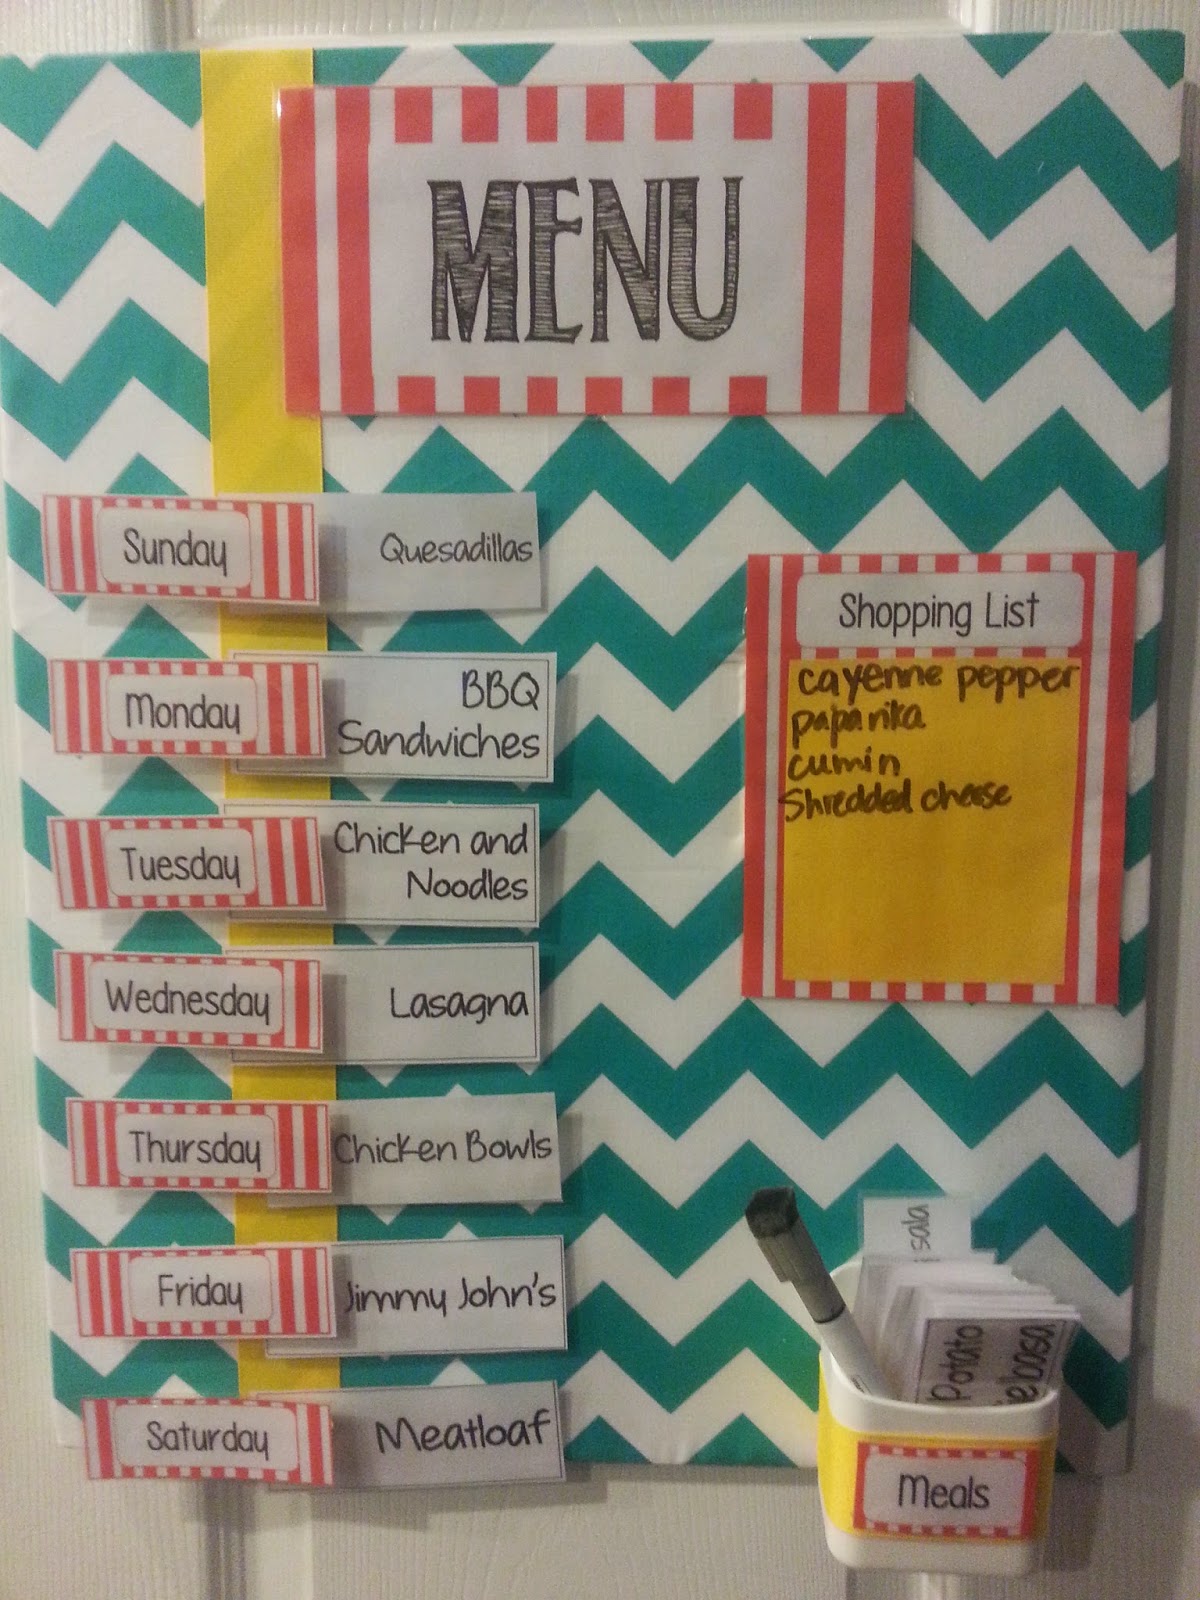 MENU
Sunday
Quesadillas
Monday
BBQ
Sandwiches
Tuesday
Chicken and
Noodles
Wednesday
Lasagna
Thursday
Chicken Bowls
Friday
Jimmy John's
Saturday
Meatloaf
Shopping List
cayenne pepper
paparika
cumin
Shredded cheese
Potato
Meals